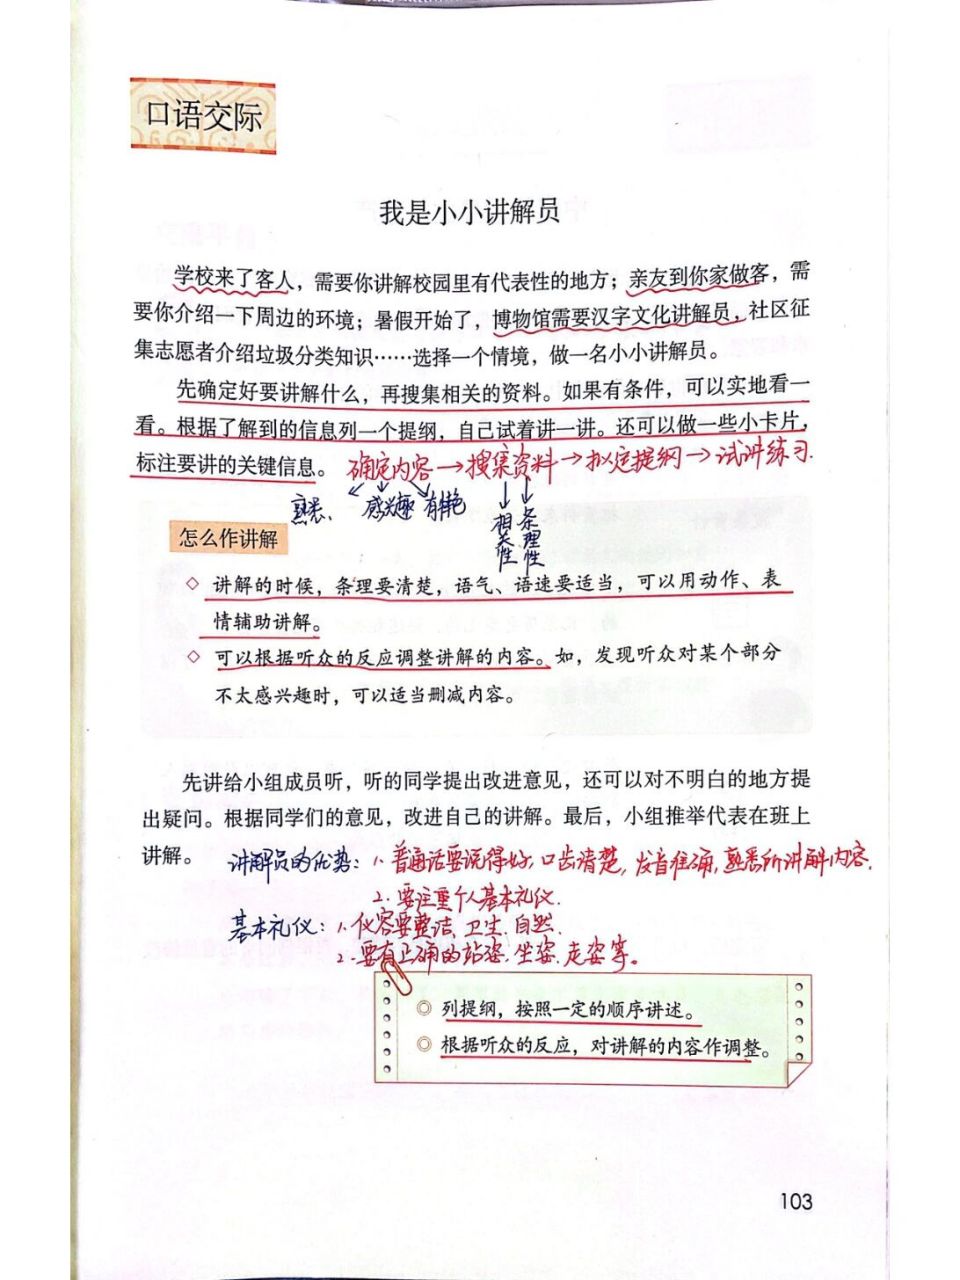 口语交际
我是小小讲解员
学校来了客人，需要你讲解校园里有代表性的地方；亲友到你家做客，需
要你介绍一下周边的环境；暑假开始了，博物馆需要汉字文化讲解员，社区征
集志愿者介绍垃圾分类知识……选择一个情境，做一名小小讲解员。
先确定好要讲解什么，再搜集相关的资料。如果有条件，可以实地看一
看。根据了解到的信息列一个提纲，自己试着讲一讲。还可以做一些小卡片，
标注要讲的关键信息。
确定内容→搜集资料→拟定提纲→试讲练习.
熟悉、感兴趣 有特色
相关性
条理性
怎么作讲解
◇ 讲解的时候，条理要清楚，语气、语速要适当，可以用动作、表
情辅助讲解。
◇ 可以根据听众的反应调整讲解的内容。如，发现听众对某个部分
不太感兴趣时，可以适当删减内容。
先讲给小组成员听，听的同学提出改进意见，还可以对不明白的地方提
出疑问。根据同学们的意见，改进自己的讲解。最后，小组推举代表在班上
讲解。
讲解员的优势：1. 普通话要说得好，口齿清楚，发音准确，熟悉所讲解内容.
2. 要注重个人基本礼仪.
基本礼仪：1. 仪容要整洁、卫生、自然.
2. 要有正确的站姿、坐姿、走姿等。
◎ 列提纲，按照一定的顺序讲述。
◎ 根据听众的反应，对讲解的内容作调整。
103